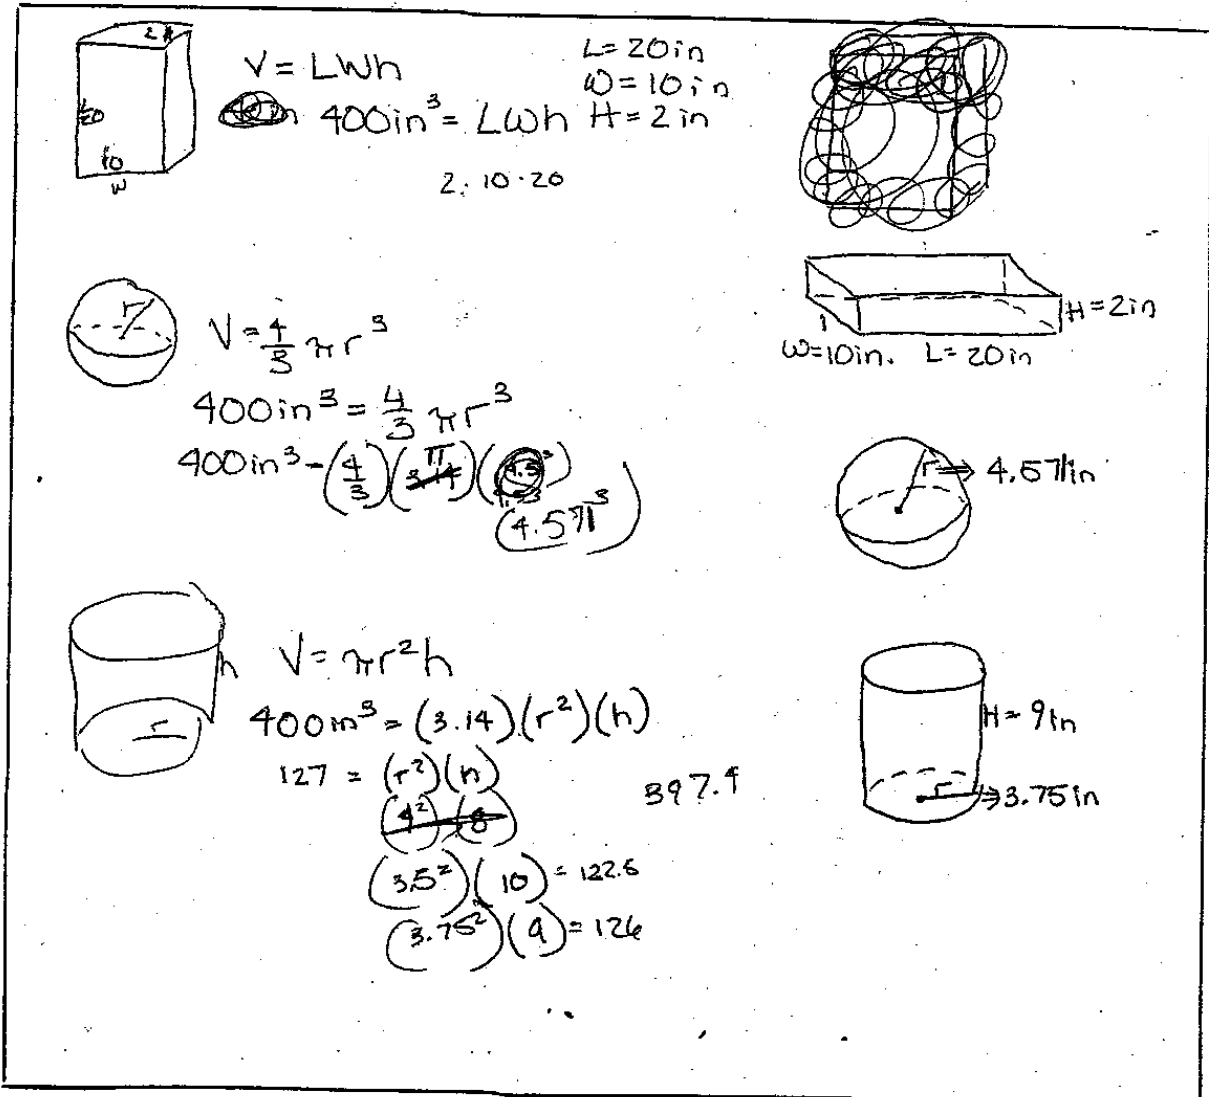 2 h
L
20
10
W
V = LWh
L= 20in
W = 10in
400in³ = LWh H = 2in
2. 10 · 20
H = 2in
W=10in. L= 20in
r
V = 4/3 πr³
400in³ = 4/3 πr³
400in³ - (4/3)(π)
(4.5π³)
r ⇒ 4.571in
h
r
V = πr²h
400in³ = (3.14)(r²)(h)
127 = (r²)(h)
(4²)(8)
(3.5²)(10) = 122.5
(3.75²)(9) = 126
397.4
H = 9in
r ⇒ 3.75in